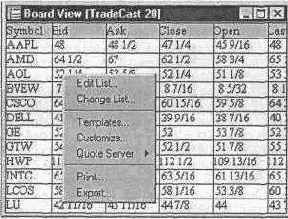 Board View [TradeCast 20]
Symbol Bid Ask Close Open Last
AAPL 48 48 1/2 47 1/4 45 9/16 48
AMD 64 1/2 67 62 1/2 58 3/4 65
AOL 52 1/4 51 1/8 53
Edit List...
BVEW 8 7/16 8 5/32 8 1
Change List...
CSCO 64 60 15/16 59 5/8 64
DELL 41 39 9/16 38 7/16 40
Templates...
GE 52 52 53 7/8 52
Customize...
GTW 54 52 1/2 51 7/8 55
Quote Server
HWP 11 112 1/2 109 13/16 112
INTC 65 63 5/16 61 13/16 65
Print...
LCOS 58 58 1/16 53 3/8 60
Export...
LU 42 11/16 43 11/16 44 7/8 44 43